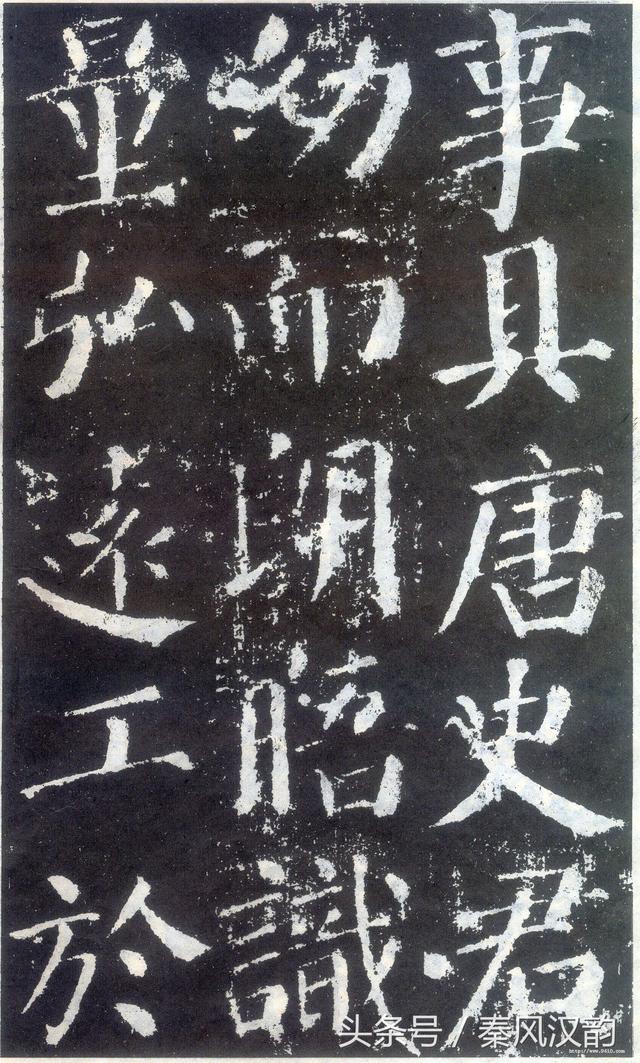 事具唐史君
幼而朗晤識
量弘遠工於
头条号 / 秦风汉韵